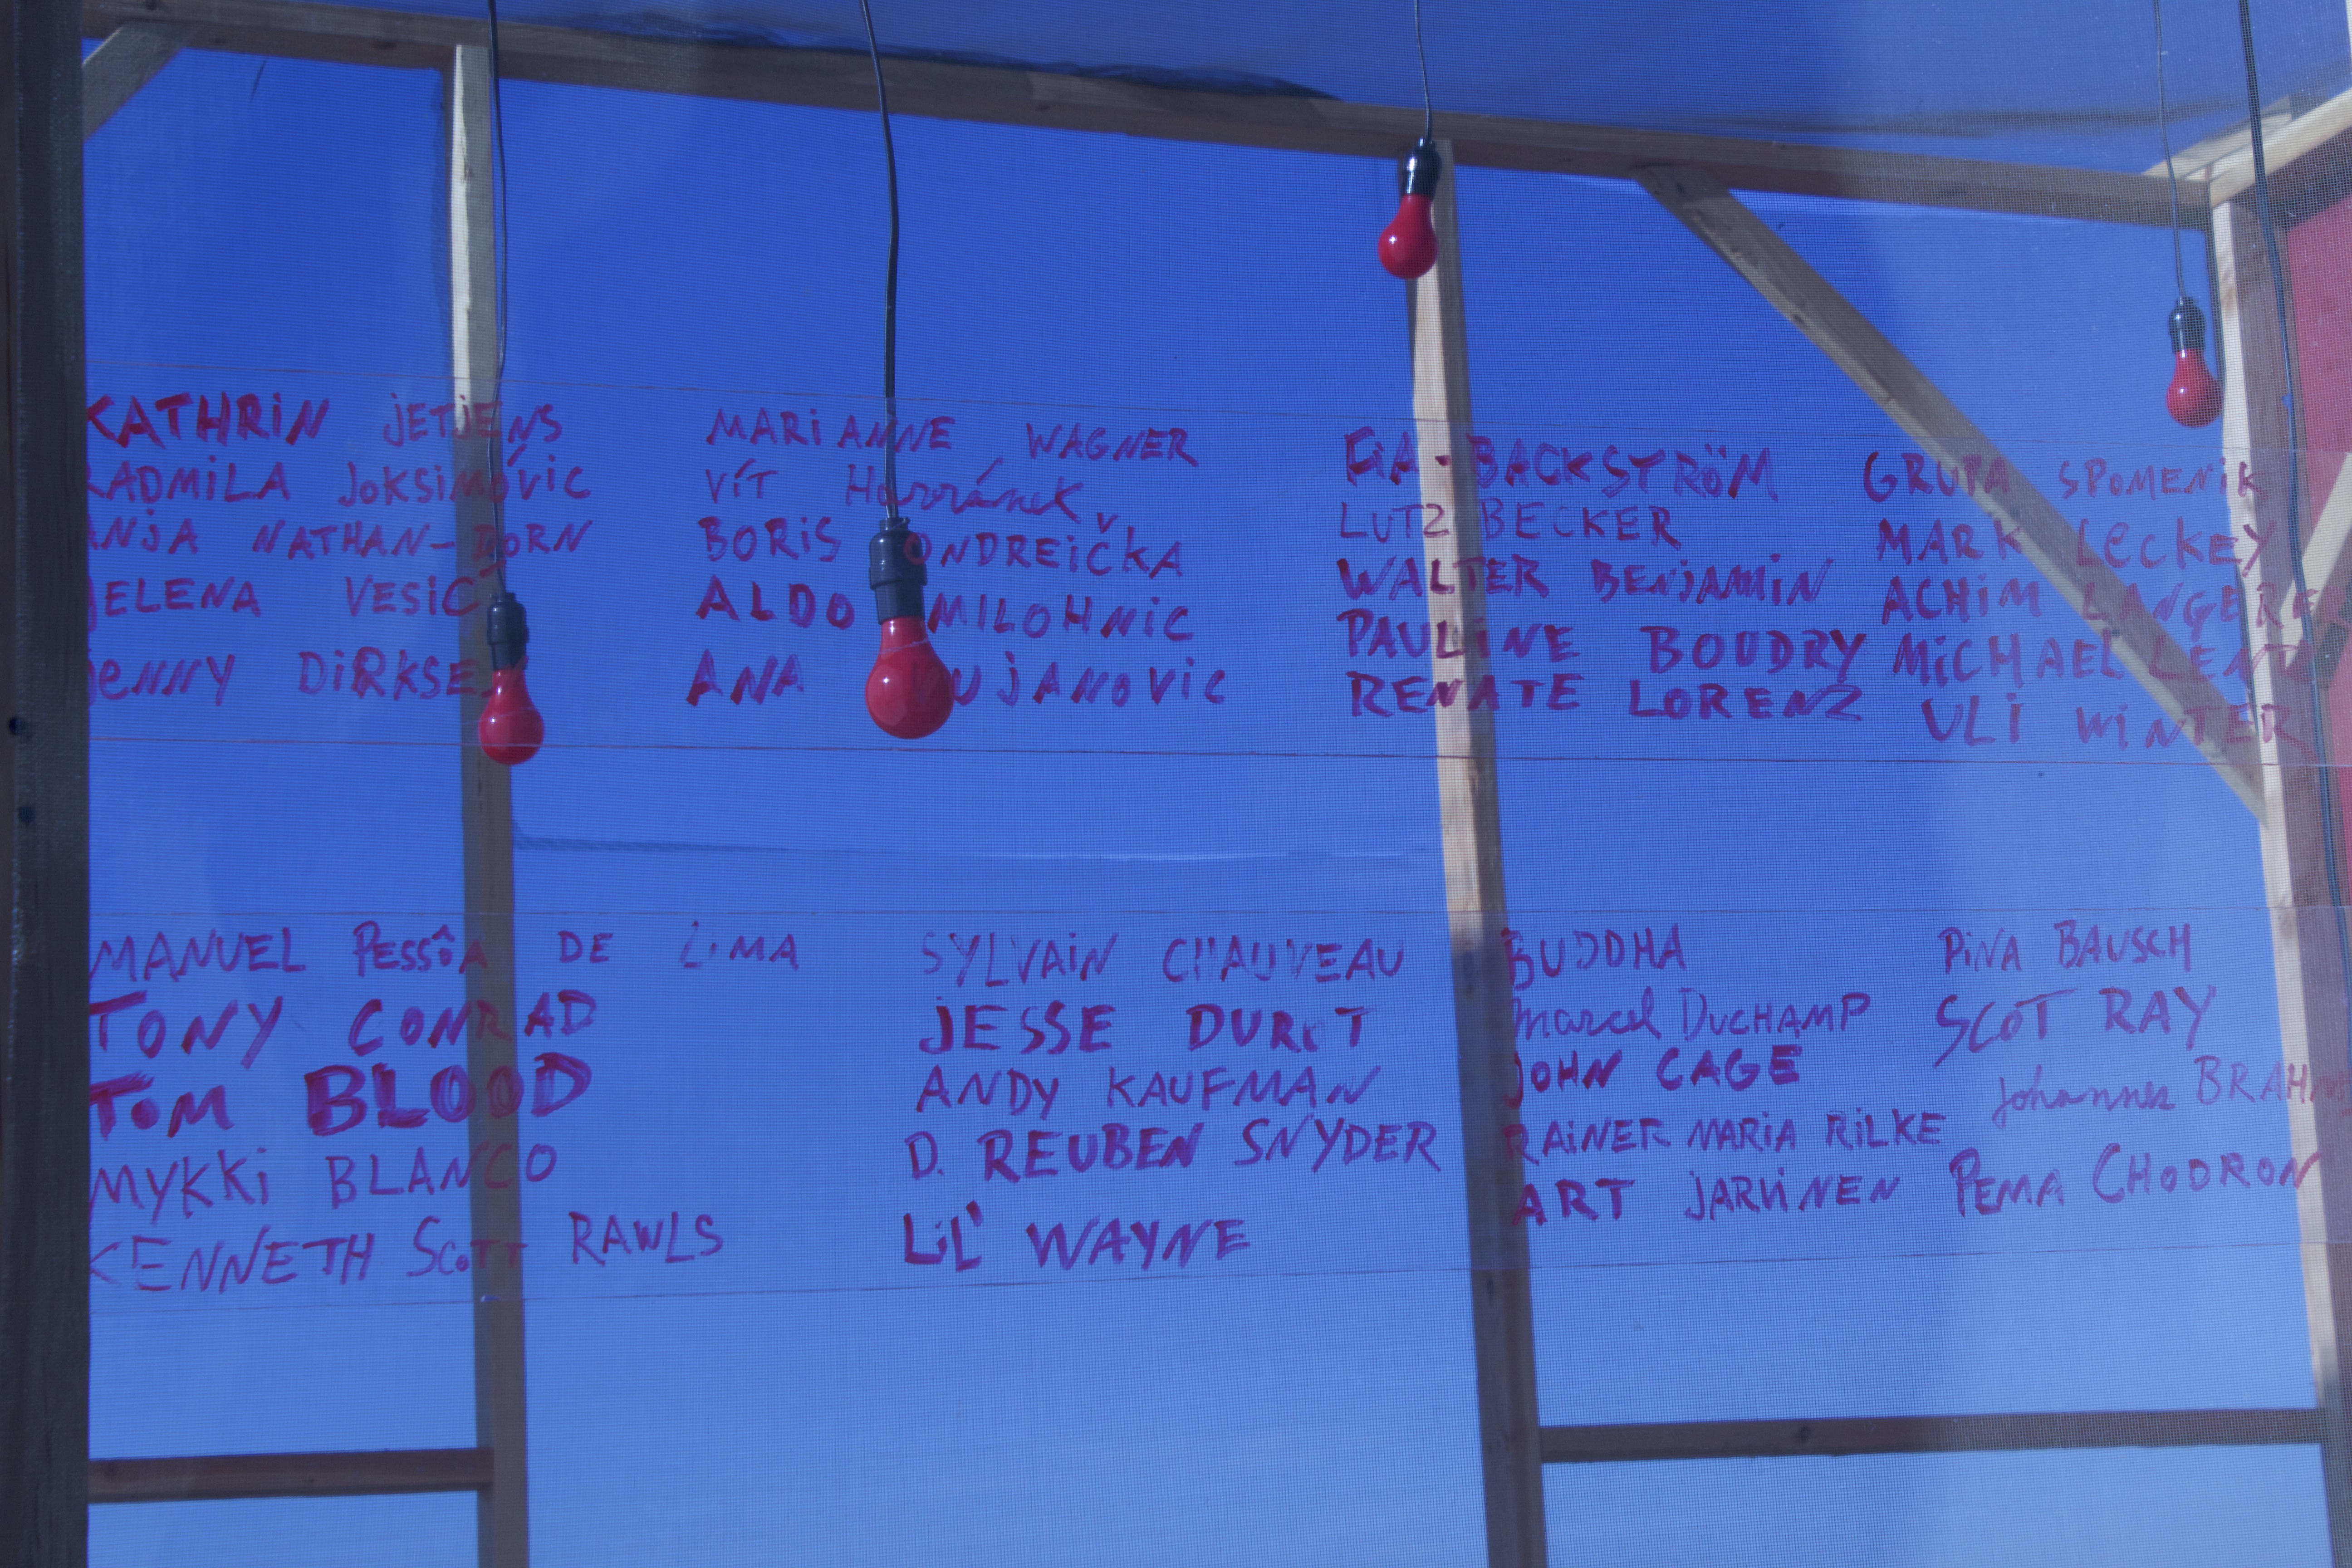 KATHRiN jETjENS
RADMiLA JOKSiMOViC
ANjA NATHAN-DORN
jELENA VESiC
jENNY DiRKSEN
MARiANNE WAGNER
VíT Havránek
BORiS ONDREiČKA
ALDO MILOHNiC
ANA VUjANOViC
FiA-BACKSTRÖM
LUTZ BECKER
WALTER BENjAMiN
PAULiNE BOUDRY
RENATE LORENZ
GRUPA SPOMENiK
MARK LeCKEY
ACHiM
MiCHAEL
ULi WiNTER
MANUEL PESSôA DE LiMA
TONY CONRAD
TOM BLOOD
MYKKi BLANCO
KENNETH SCOTT RAWLS
SYLVAiN CHAUVEAU
jESSE
ANDY KAUFMAN
D. REUBEN SNYDER
LiL' WAYNE
BUDDHA
Marcel DUCHAMP
jOHN CAGE
RAiNER MARiA RiLKE
ART jARViNEN
PiNA BAUSCH
SCOT RAY
johannes BRAHMS
PEMA CHODRON